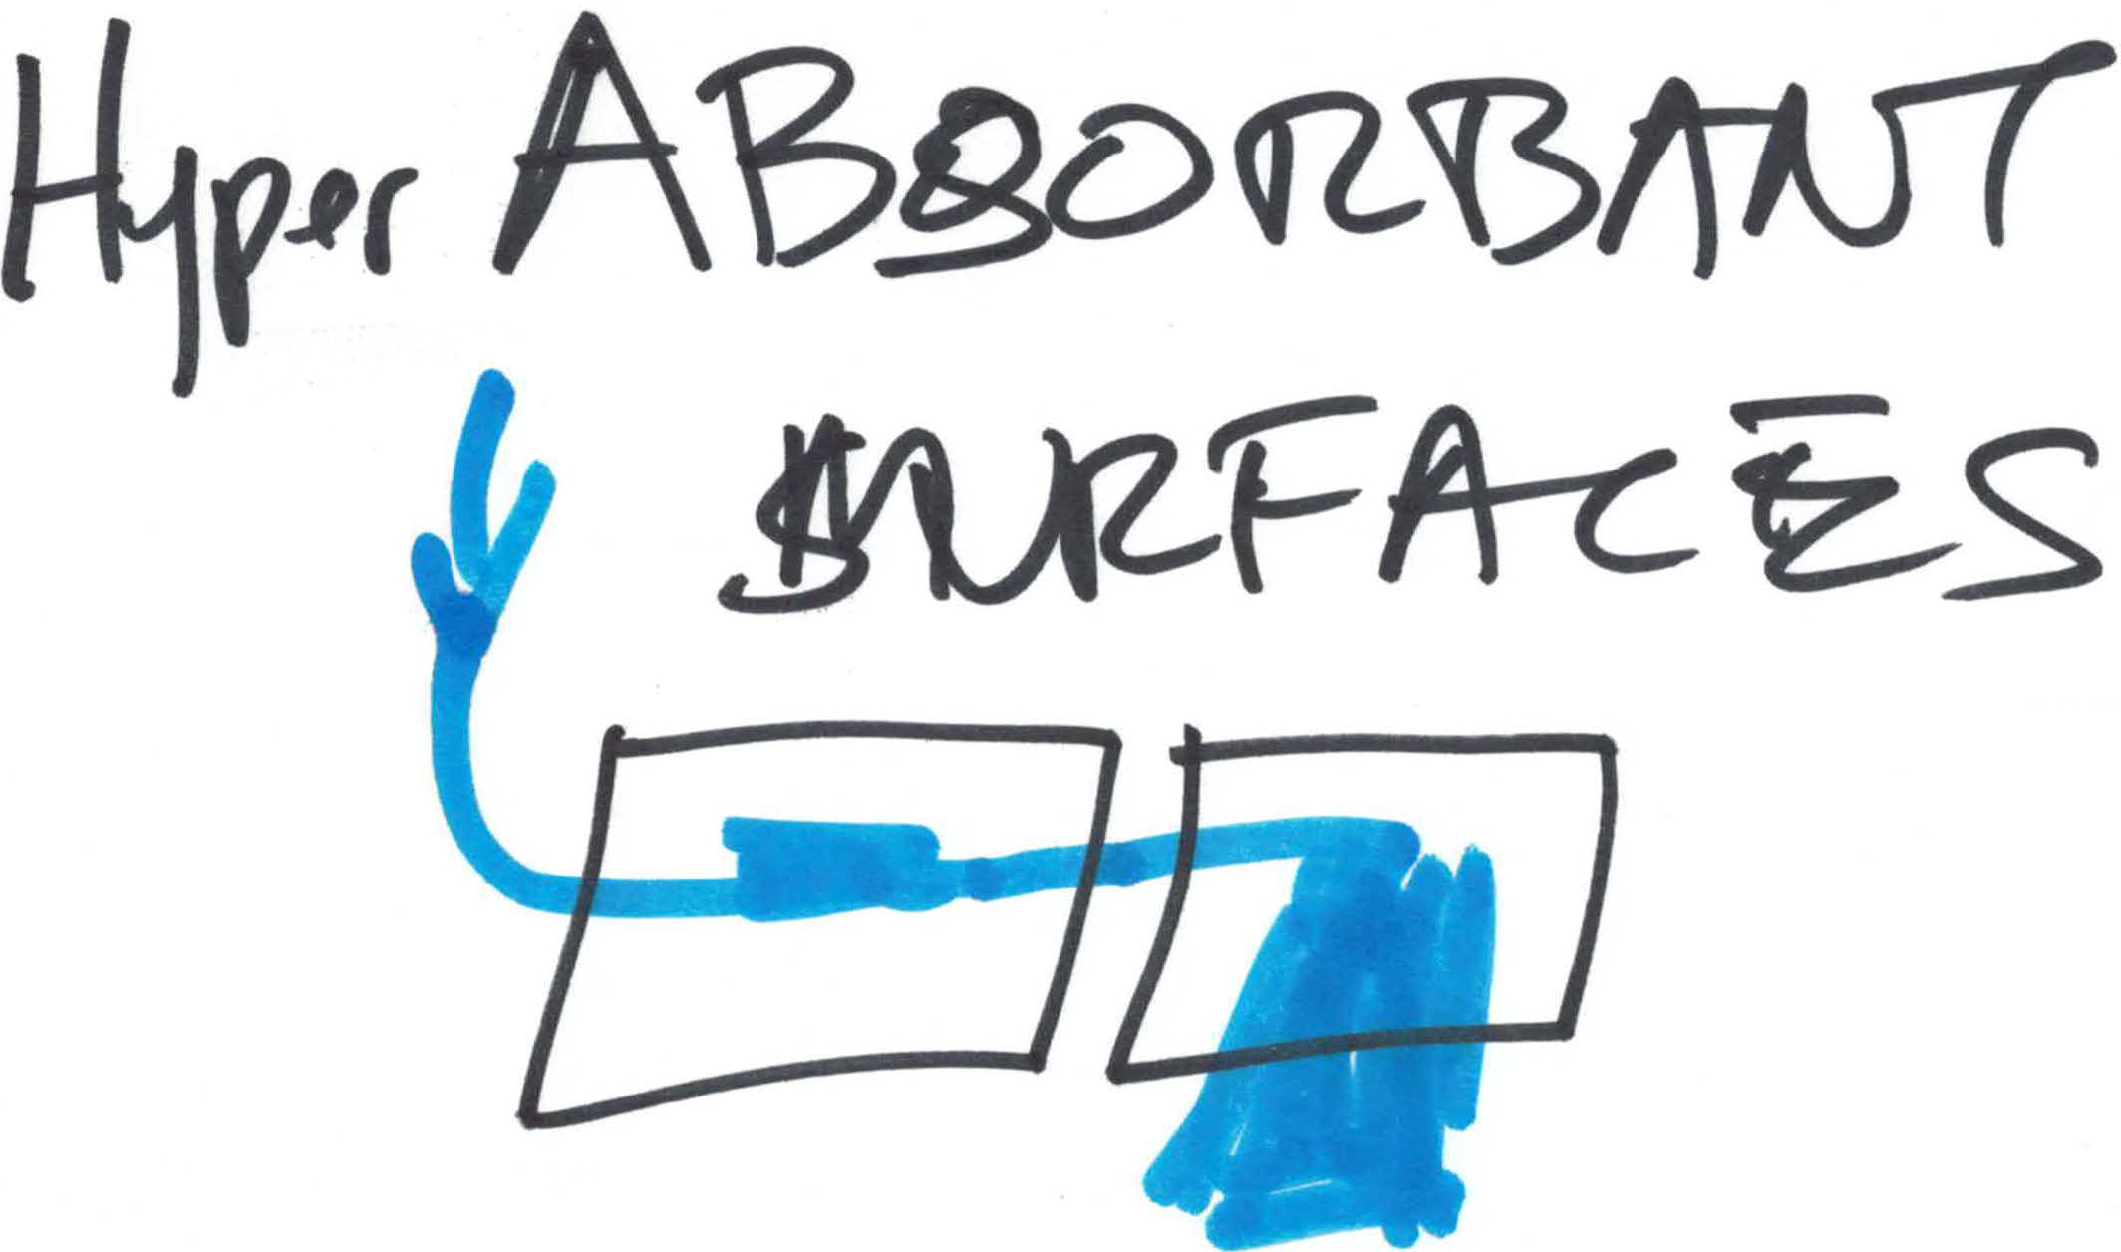 Hyper ABSORBANT
SURFACES